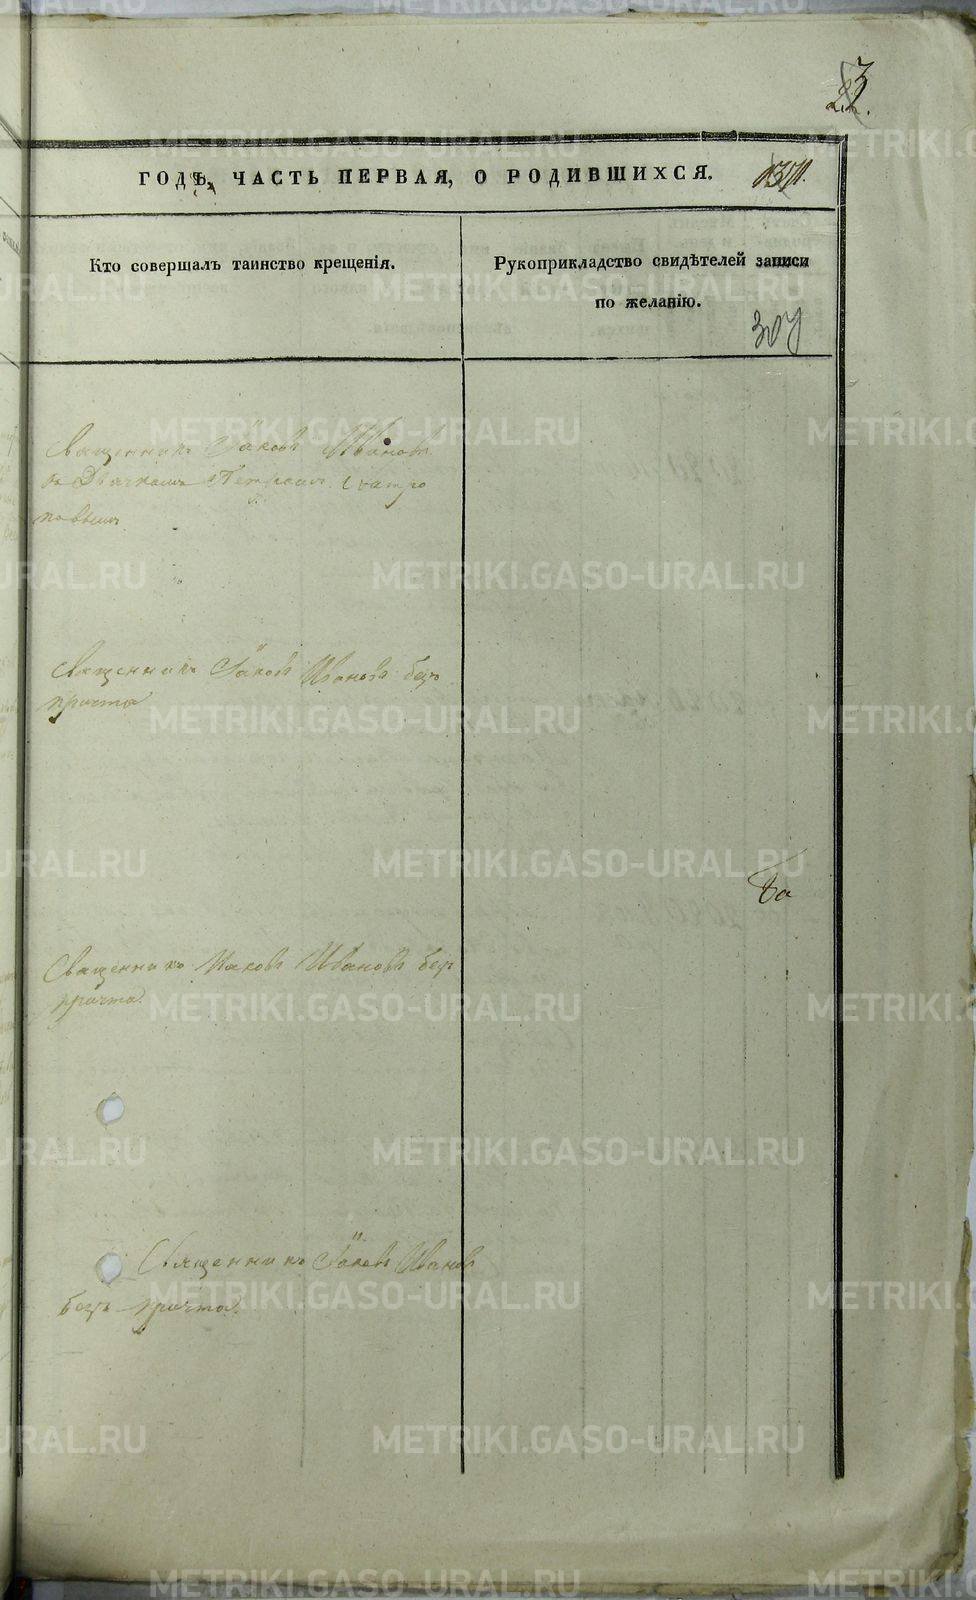 3
ГОДѢ, ЧАСТЬ ПЕРВАЯ, О РОДИВШИХСЯ.
Кто совершалъ таинство крещенія.
Рукоприкладство свидѣтелей записи
по желанію.
Священникъ Іаковъ Ивановъ
съ Дьячкомъ Петромъ
Священникъ Іаковъ Ивановъ безъ
причта
Священникъ Иаковъ Ивановъ безъ
причта.
Священникъ Іаковъ Ивановъ
безъ причта.
METRIKI.GASO-URAL.RU